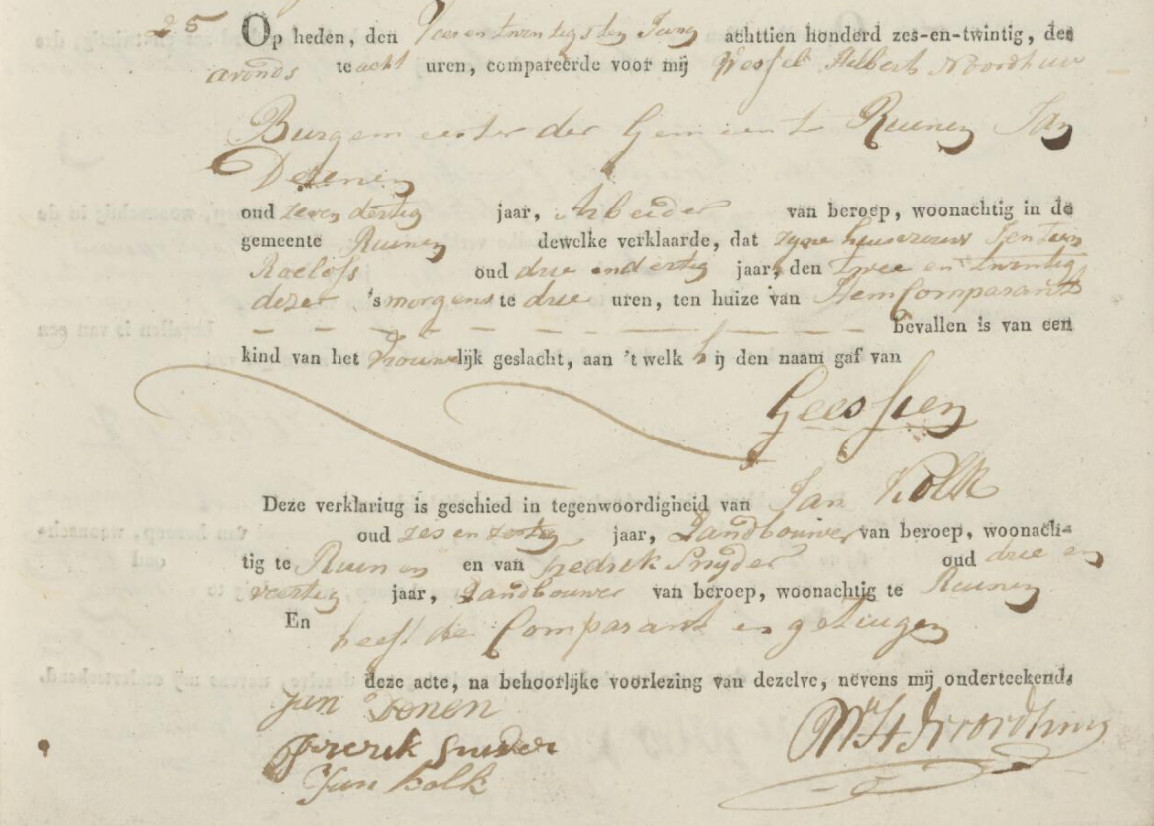 25 Op heden, den Vier en twintigsten Juny achttien honderd zes-en-twintig, des
avonds te acht uren, compareerde voor mij Wessel Helbert Noordhuis
Burgemeester der Gemeente Ruinen Jan
Deenen
oud zeven dertig jaar, Arbeider van beroep, woonachtig in de
gemeente Ruinen dewelke verklaarde, dat zyne huisvrouw
Roelofs oud drie en dertig jaar, den twee en twintig
dezer 's morgens te drie uren, ten huize van Hem Comparant
bevallen is van een
kind van het vrouwelijk geslacht, aan 't welk hij den naam gaf van
Geessien
Deze verklaring is geschied in tegenwoordigheid van Jan Kolk
oud zes en jaar, Landbouwer van beroep, woonach-
tig te Ruinen en van Fredrik Snyder oud drie en
veertig jaar, Landbouwer van beroep, woonachtig te Ruinen
En heeft de Comparant en getuigen
deze acte, na behoorlijke voorlezing van dezelve, nevens mij onderteekend.
Jan Donen
Frerik Snider
Jan Kolk
WH Noordhuis